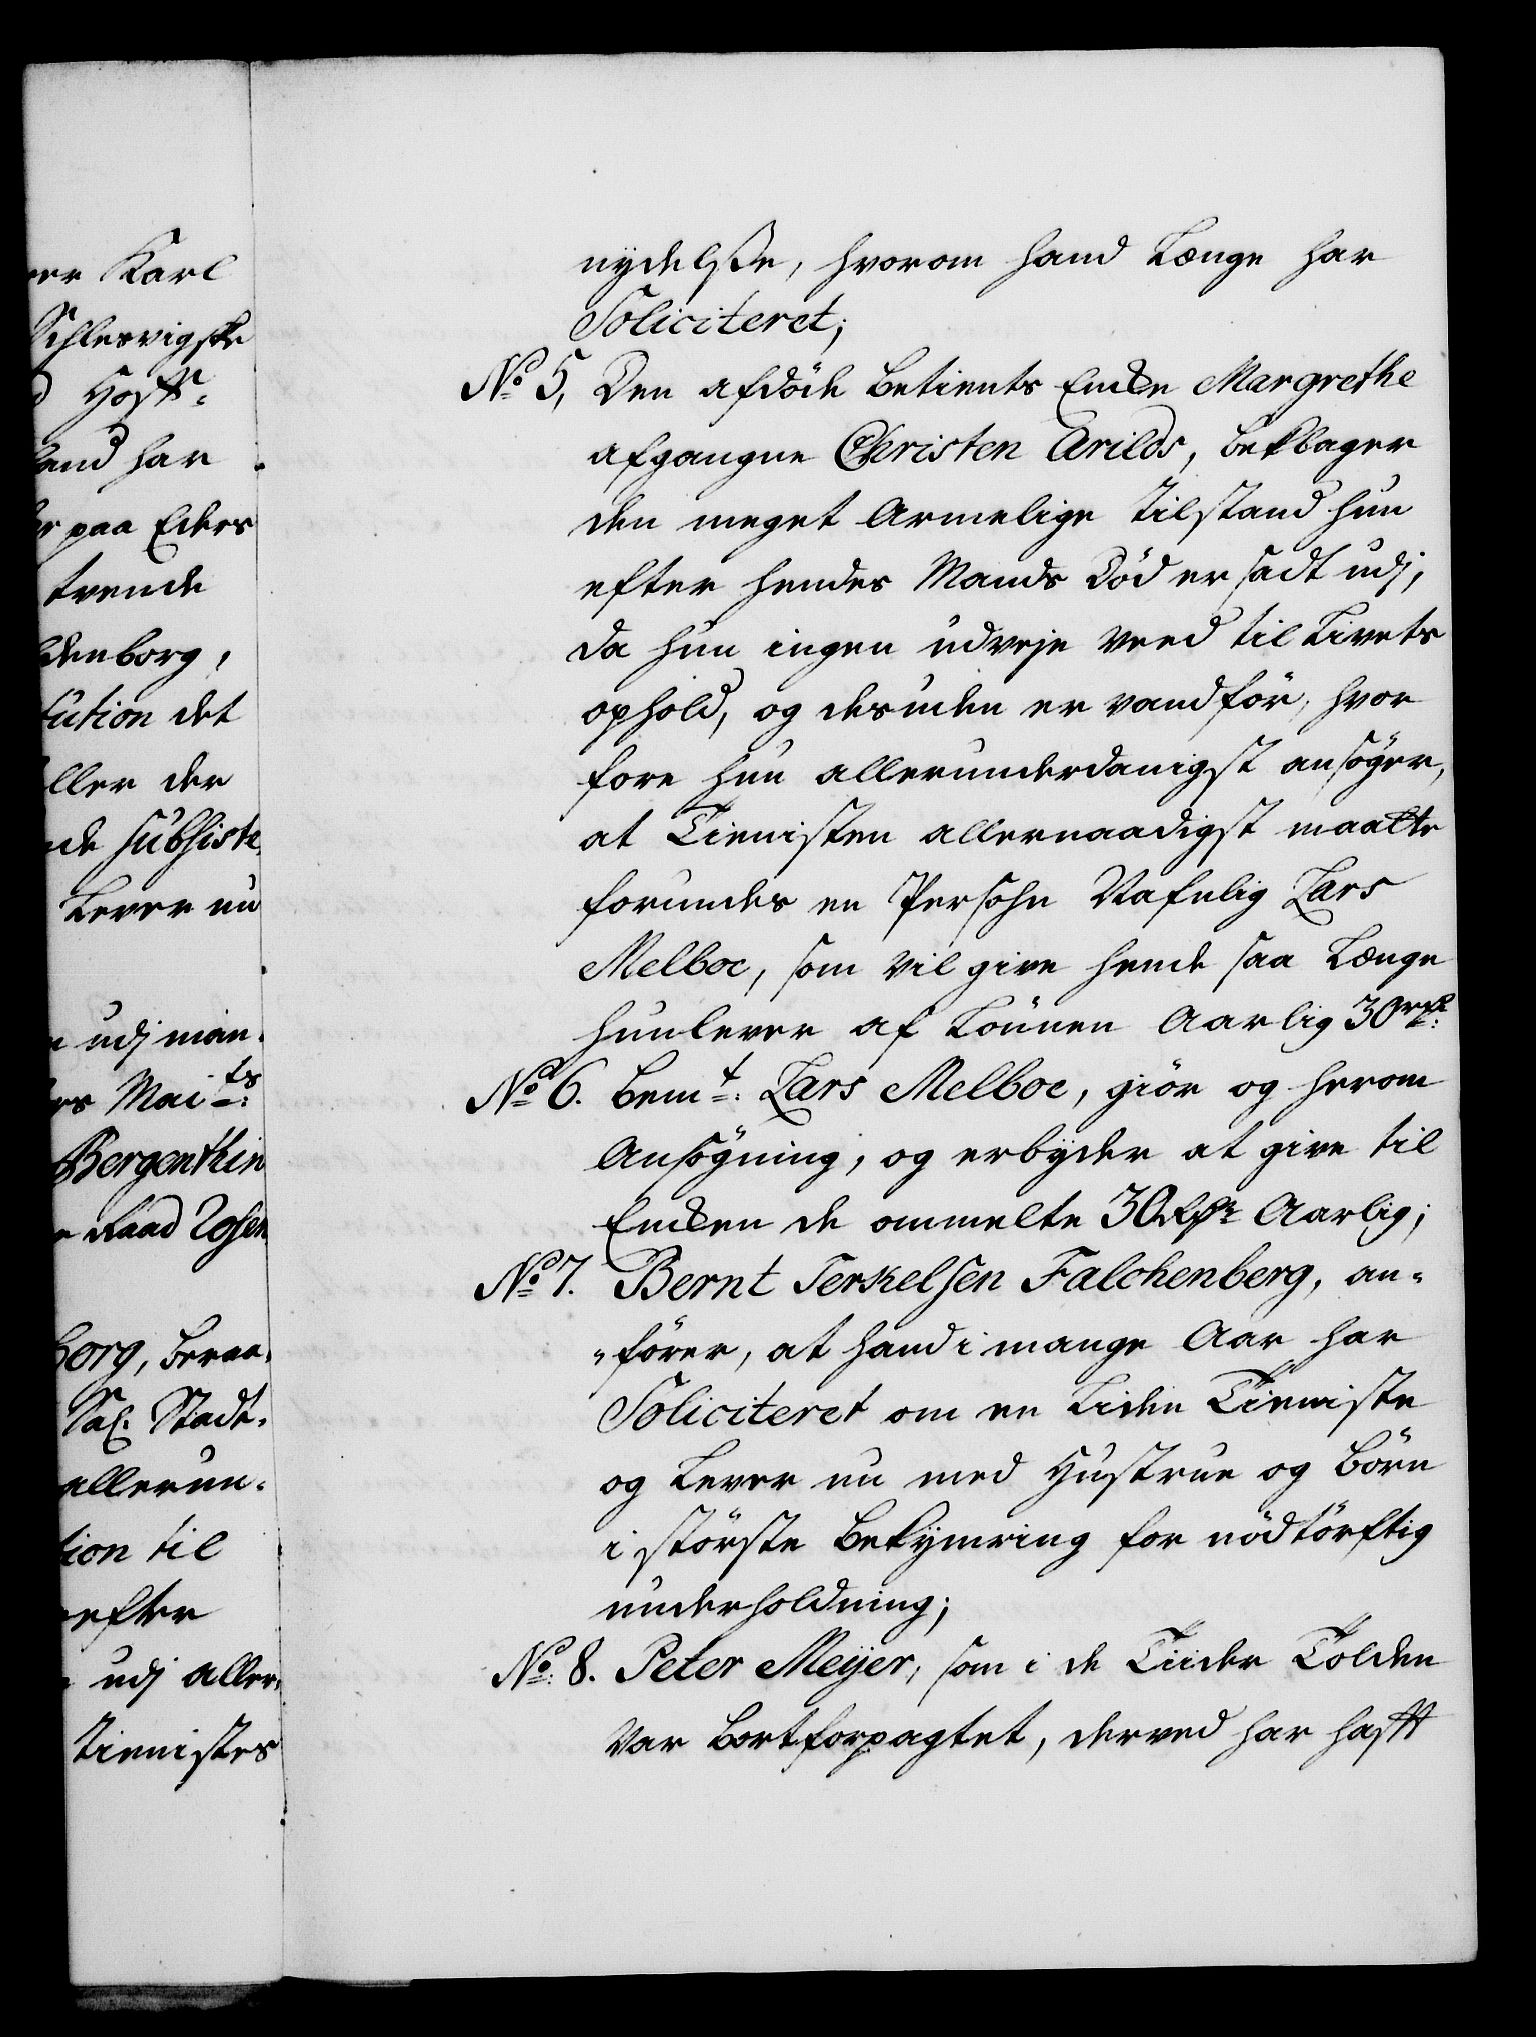 er Karl
Schlesvigske
d Hoff=
hand har
er paa Eders
trende
denborg,
tution det
ller der
de subsiste
Lever nu
udj män=
rs Maits:
Bergenthin
Raad Rosen
borg,
Sal: Stadt=
allerun=
tion til
efter
udj aller=
tienistes
nydelsse, hvorom hand Længe har
Soliciteret;
No 5, Den afdöde betients Encke Margrethe
afgangne Christen Arilds, beklager
den meget Armelige tilstand hun
efter hendes Mands Död er sadt udj,
da hun ingen udveje veed til Livets
ophold, og desuden er vandför, hvor
fore hun allerunderdanigst ansöger,
at Tienisten allernaadigst maatte
forundes en Persohn Nafnlig Lars
Melboe, som vil give hende saa Længe
hun lever af Lönnen Aarlig 30 rdr:
No 6. bemt: Lars Melboe, giör og herom
Ansögning, og erbyder at give til
Encken de ommelte 30 Rdr Aarlig;
No 7. Bernt Terkelsen Falckenberg, an=
=förer, at hand i mange Aar har
Soliciteret om en Liden Tieniste
og Lever nu med Hustrue og börn
i störste bekymring for nödtörftig
underholdning;
No: 8. Peter Meyer, som i de Tiider Tolden
Var bortforpagtet, derved har hafft